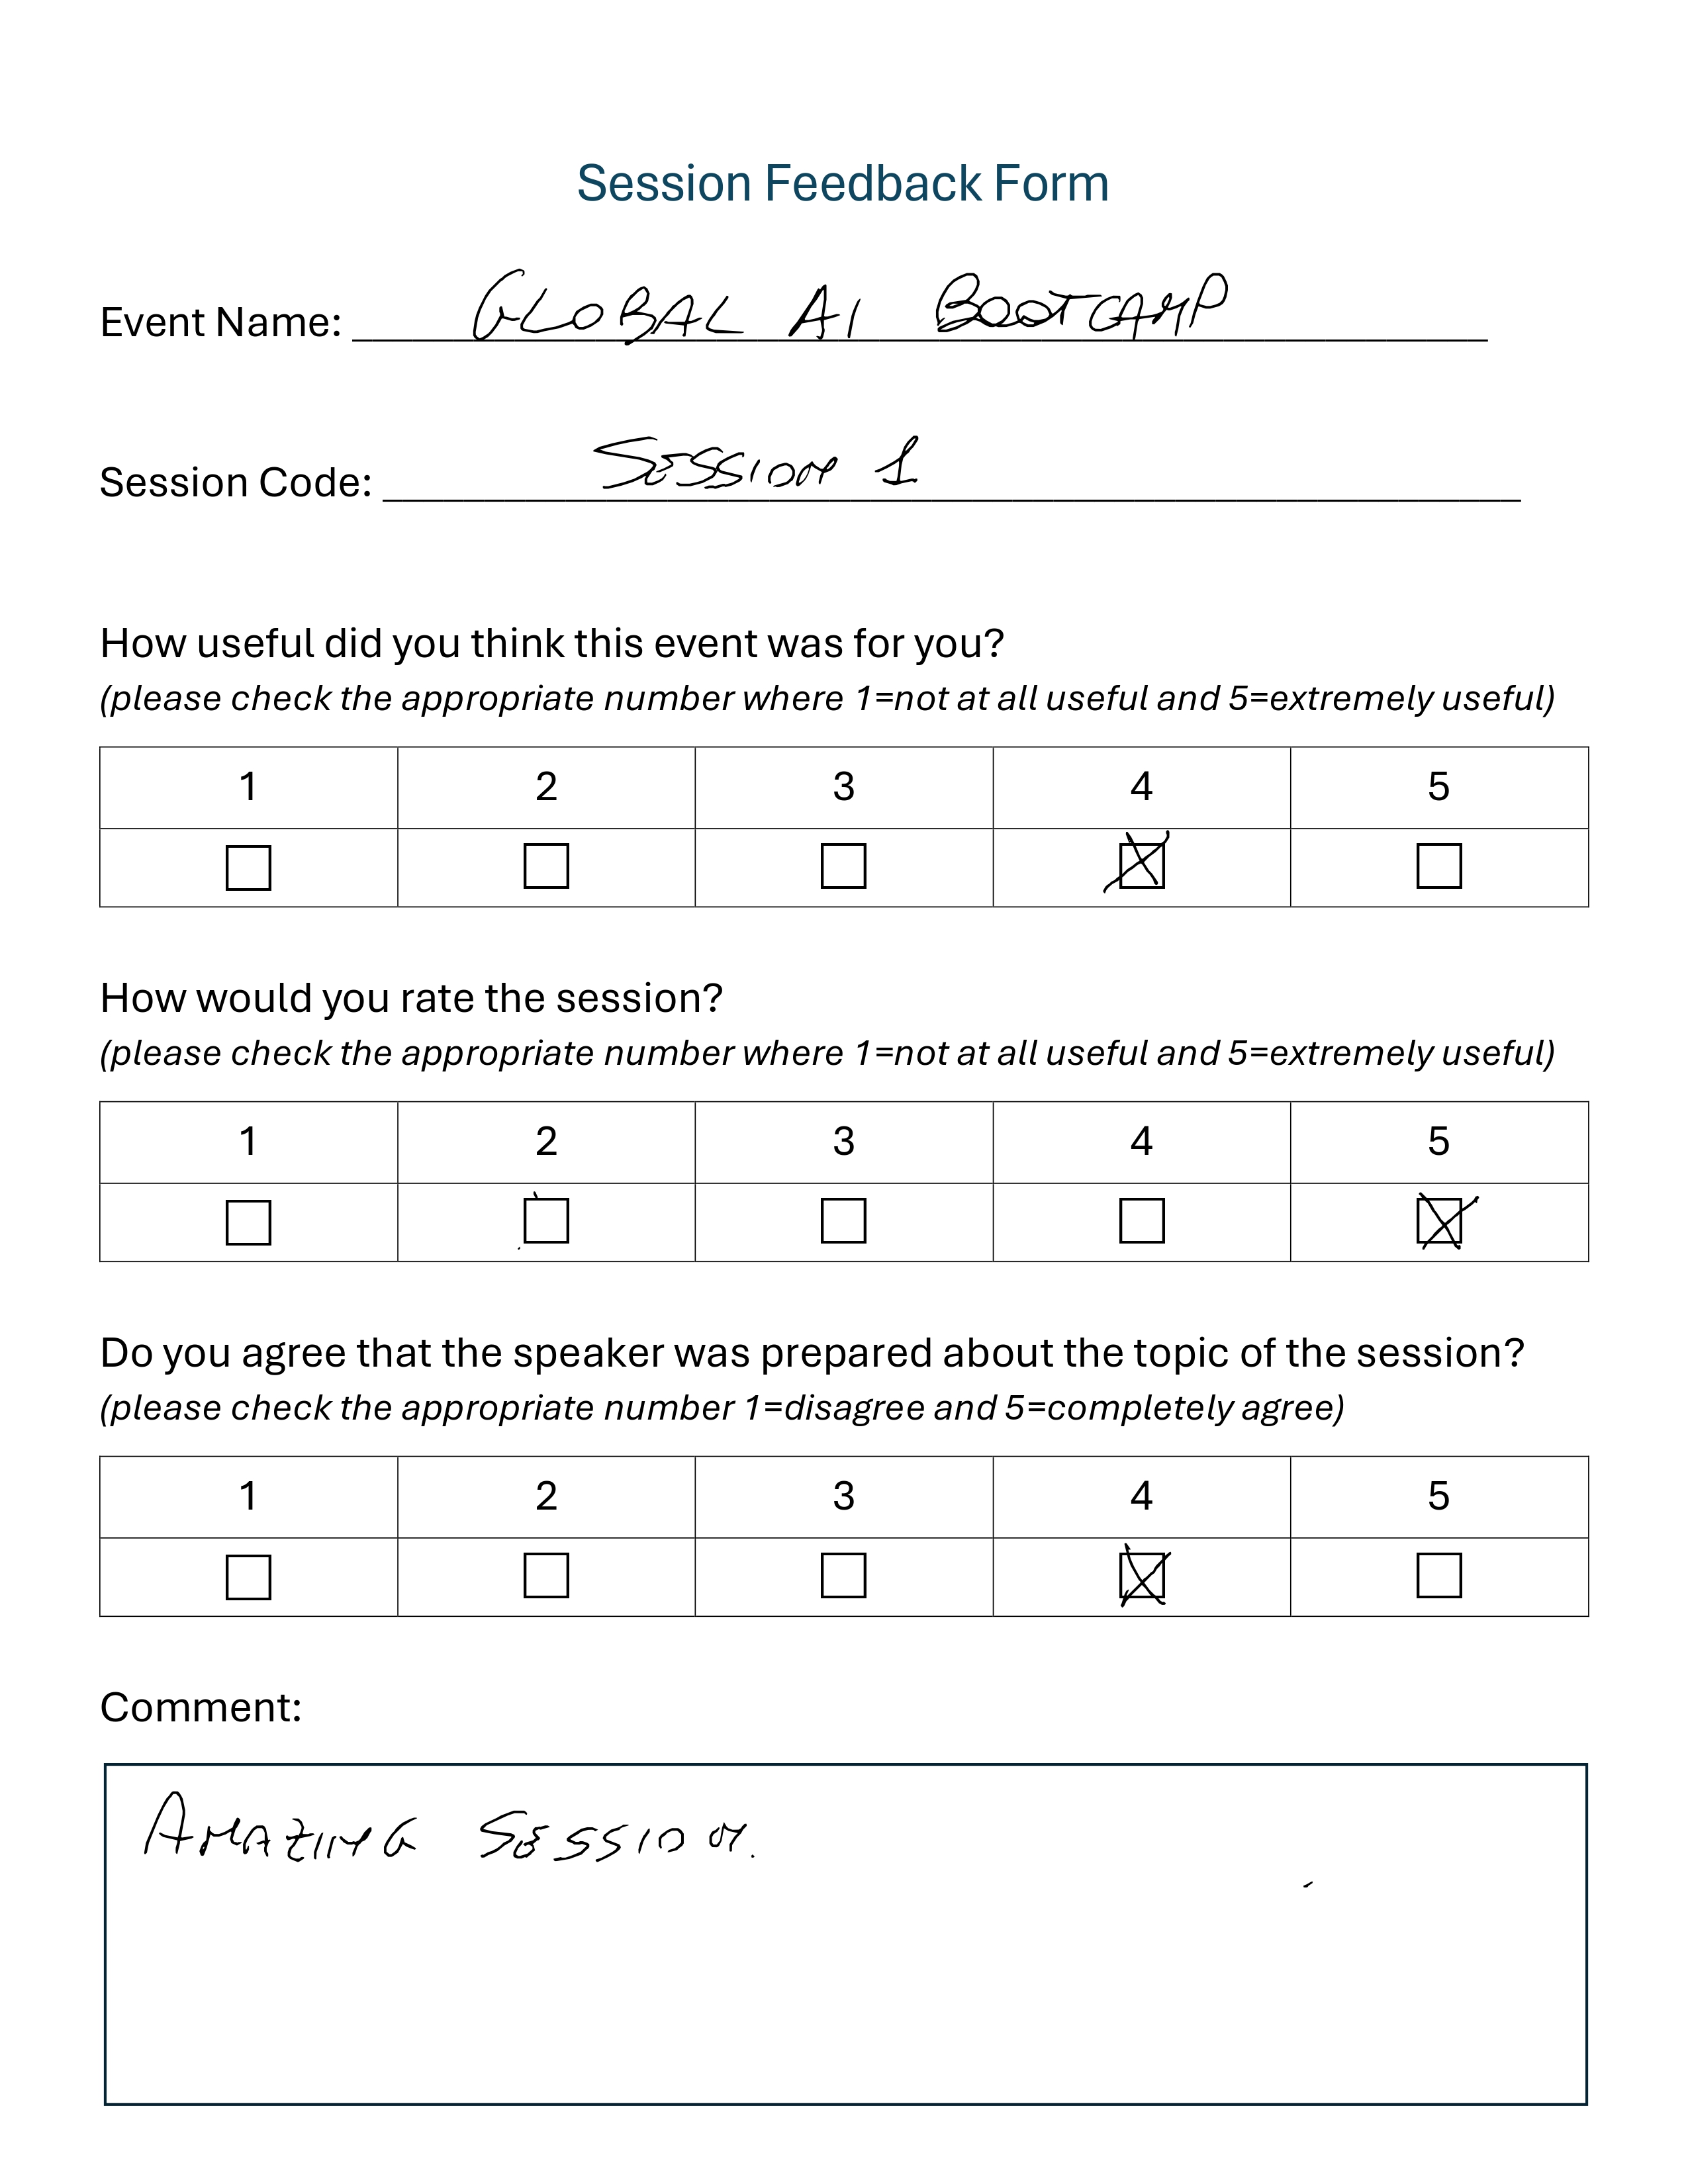 Session Feedback Form
Event Name: GLOBAL AI BOOTCAMP
Session Code: SESSION 1
How useful did you think this event was for you?
(please check the appropriate number where 1=not at all useful and 5=extremely useful)
1 2 3 4 5
How would you rate the session?
(please check the appropriate number where 1=not at all useful and 5=extremely useful)
1 2 3 4 5
Do you agree that the speaker was prepared about the topic of the session?
(please check the appropriate number 1=disagree and 5=completely agree)
1 2 3 4 5
Comment:
AMAZING SESSION.